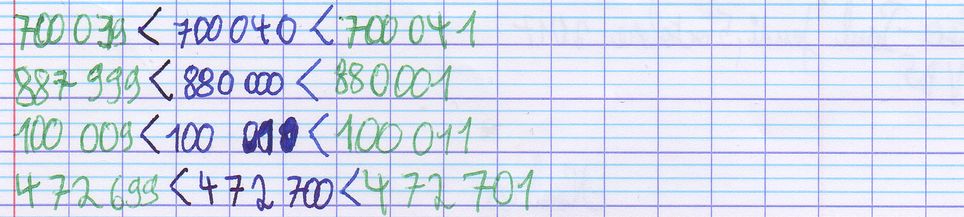 700 039 < 700 040 < 700 041
887 999 < 880 000 < 880 001
100 009 < 100 010 < 100 011
472 699 < 472 700 < 472 701